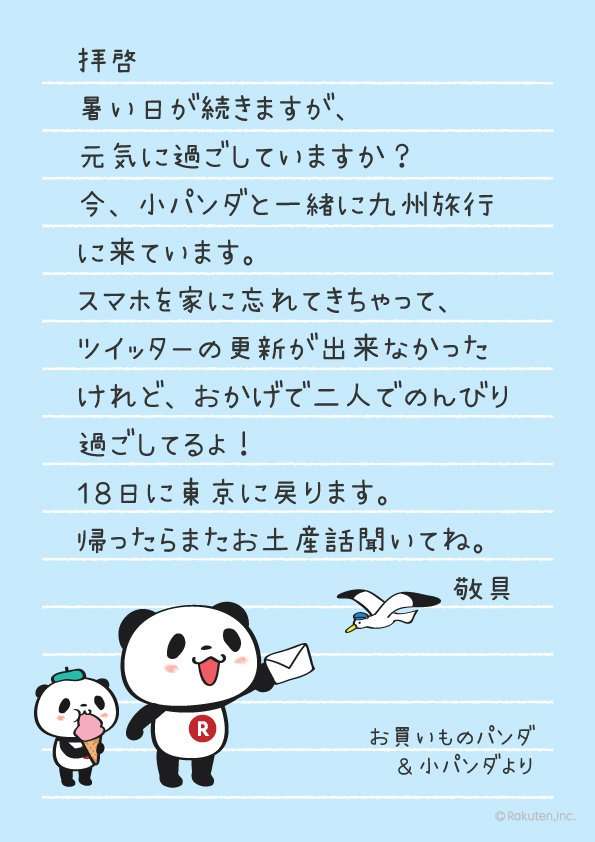 拝啓
暑い日が続きますが、
元気に過ごしていますか？
今、小パンダと一緒に九州旅行
に来ています。
スマホを家に忘れてきちゃって、
ツイッターの更新が出来なかった
けれど、おかげで二人でのんびり
過ごしてるよ！
18日に東京に戻ります。
帰ったらまたお土産話聞いてね。
敬具
R
お買いものパンダ
＆小パンダより
©Rakuten,Inc.